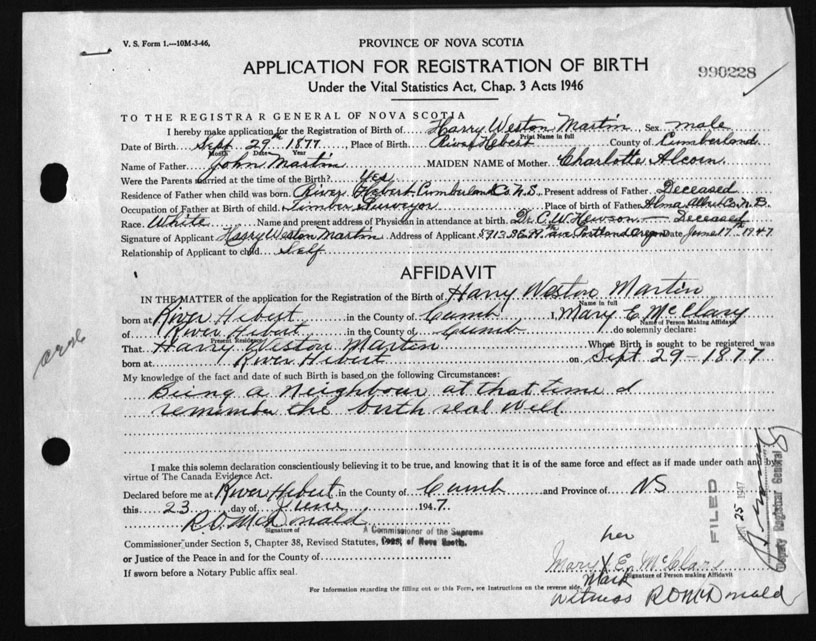 V. S. Form 1.—10M-3-46.
PROVINCE OF NOVA SCOTIA
APPLICATION FOR REGISTRATION OF BIRTH
990228
Under the Vital Statistics Act, Chap. 3 Acts 1946
TO THE REGISTRAR GENERAL OF NOVA SCOTIA
I hereby make application for the Registration of Birth of Harry Weston Martin Sex male
Print Name in full
Date of Birth Sept. 29th 1877 Place of Birth River Hebert County of Cumberland
Month Date Year
Name of Father John Martin MAIDEN NAME of Mother Charlotte Alcorn
Were the Parents married at the time of the Birth? Yes
Residence of Father when child was born. River Hebert Cumberland Co N.S. Present address of Father Deceased
Occupation of Father at Birth of child. Timber Surveyor Place of Birth of Father Alma Albert Co N.B.
Race. White Name and present address of Physician in attendance at birth. Dr. C. W. Hewson — Deceased
Signature of Applicant Harry Weston Martin Address of Applicant 5713 S.E. ave Portland Oregon Date June 17th 1947
Relationship of Applicant to child Self
AFFIDAVIT
IN THE MATTER of the application for the Registration of the Birth of Harry Weston Martin
Name in full
born at River Hebert in the County of Cumb I, Mary E. McClary
Name of Person Making Affidavit
of River Hebert in the County of Cumb do solemnly declare:
Present Residence
That Harry Weston Martin Whose Birth is sought to be registered was
born at River Hebert on Sept 29 - 1877
My knowledge of the fact and date of such Birth is based on the following Circumstances:
Being a Neighbour at that time I
remember the birth real well
I make this solemn declaration conscientiously believing it to be true, and knowing that it is of the same force and effect as if made under oath and by
virtue of The Canada Evidence Act.
Declared before me at River Hebert in the County of Cumb and Province of NS
this 23 day of June 1947
R.D. McDonald
Signature of
A Commissioner of the Supreme
Court of Nova Scotia.
Commissioner under Section 5, Chapter 38, Revised Statutes,
or Justice of the Peace in and for the County of
If sworn before a Notary Public affix seal.
her
Mary X E. McClary
Mark
Signature of Person making Affidavit
For Information regarding the filling out of this Form, see Instructions on the reverse side.
Witness R D McDonald
FILED
25 1947
Deputy Registrar General